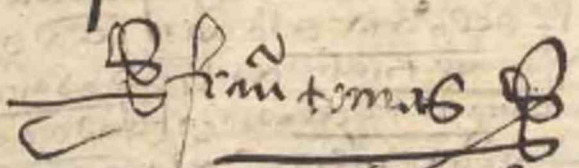 fran̄ tomas